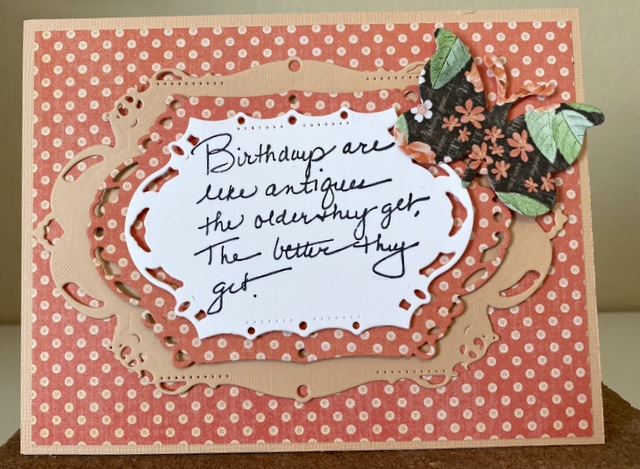 Birthdays are
like antiques
the older they get,
The better they
get.